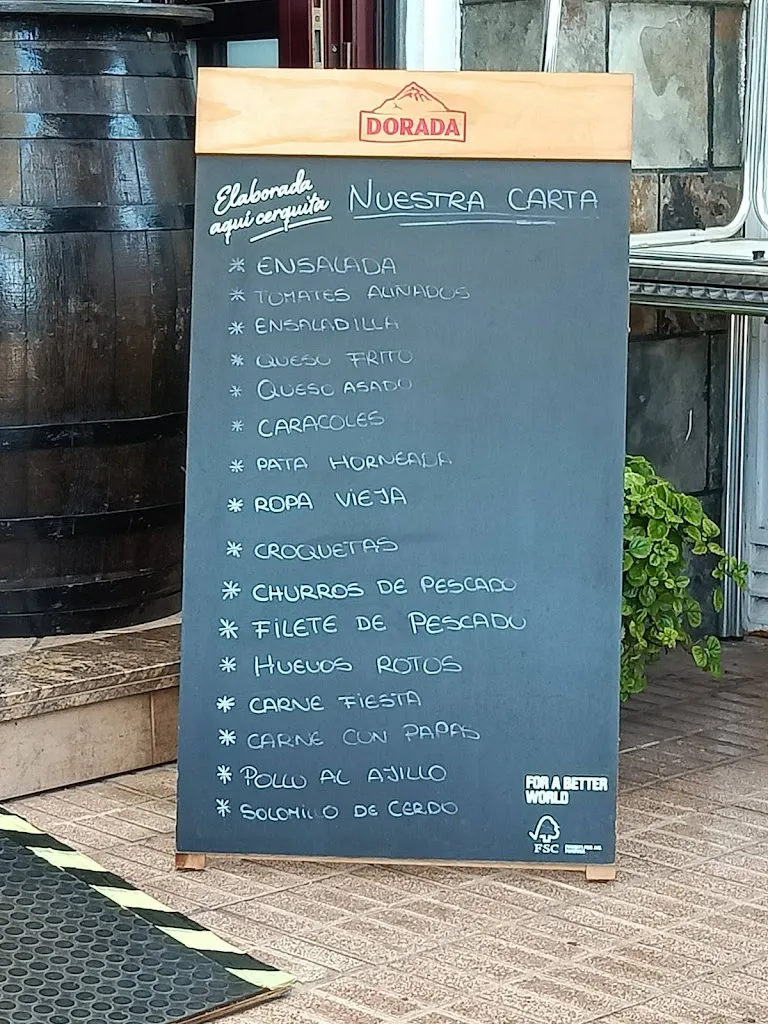 DORADA
Elaborada
aquí cerquita
NUESTRA CARTA
* ENSALADA
* TOMATES ALIÑADOS
* ENSALADILLA
* QUESO FRITO
* QUESO ASADO
* CARACOLES
* PATA HORNEADA
* ROPA VIEJA
* CROQUETAS
* CHURROS DE PESCADO
* FILETE DE PESCADO
* HUEVOS ROTOS
* CARNE FIESTA
* CARNE CON PAPAS
* POLLO AL AJILLO
* SOLOMILLO DE CERDO
FOR A BETTER
WORLD
FSC